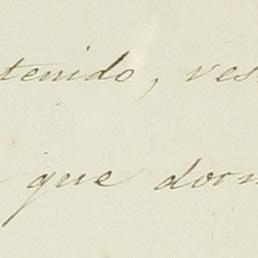 tenido, ves
que dor